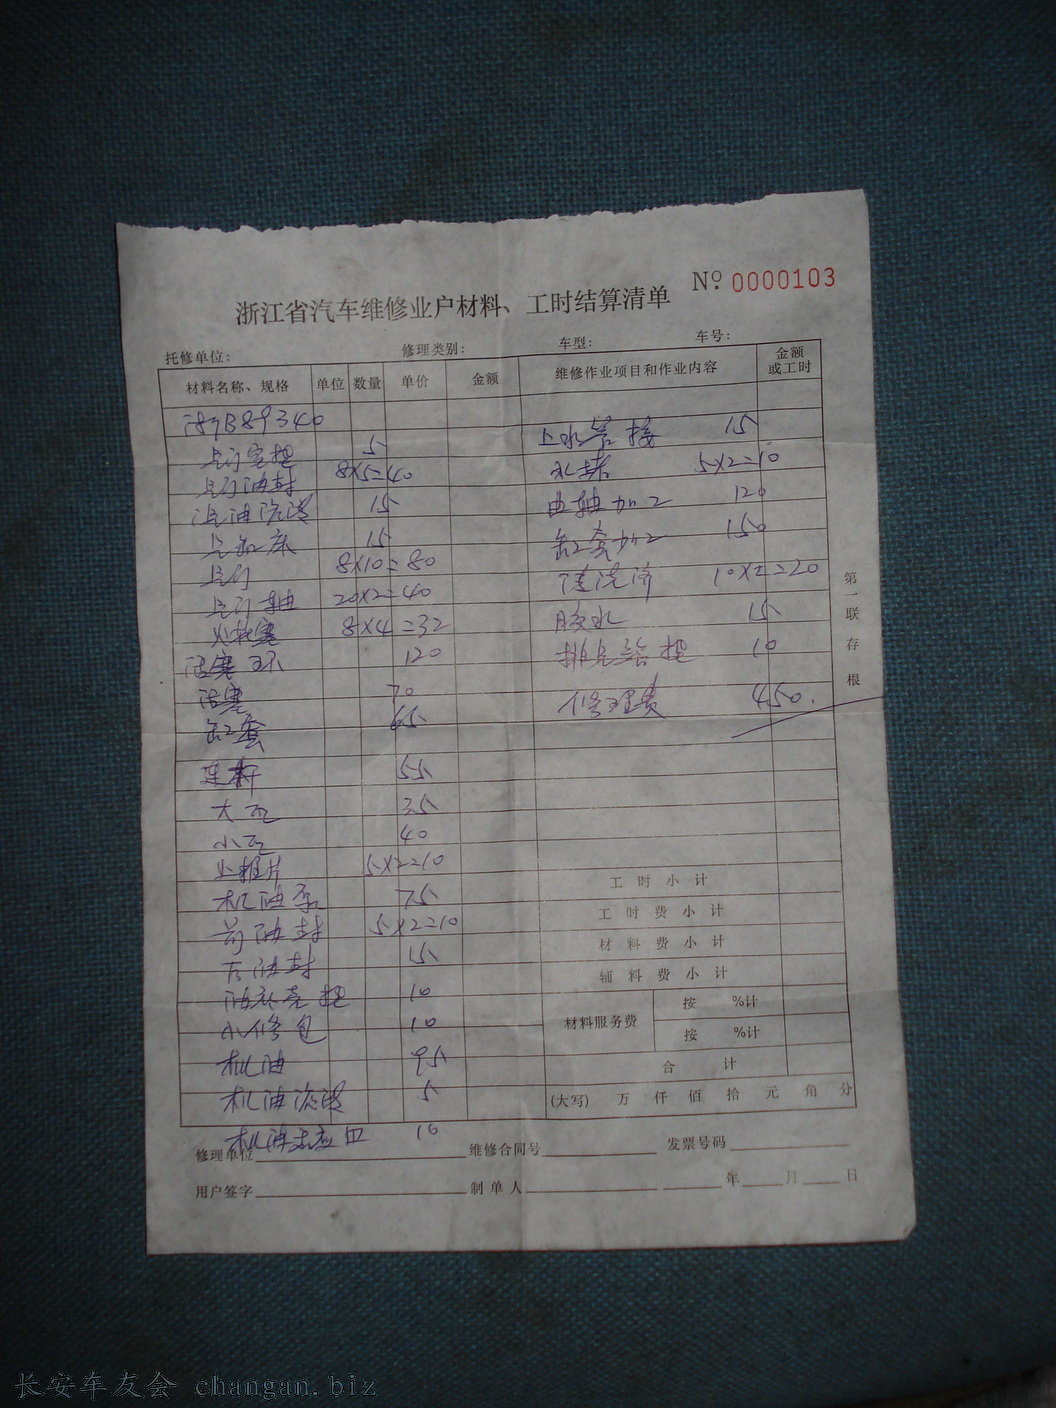 No. 0000103
浙江省汽车维修业户材料、工时结算清单
托修单位: 修理类别: 车型: 车号:
材料名称、规格 单位 数量 单价 金额 维修作业项目和作业内容 金额或工时
浙B89340
气门室垫 5 上水管接 15
气门油封 8×5=40 水堵 5×2=10
汽油滤清 15 曲轴加工 120
气缸床 15 缸套加工 150
气门 8×10=80 清洗济 10×2=20
气门轴 20×2=40 胶水 15
火花塞 8×4=32 排气管垫 10
活塞环 120 修理费 450.
活塞 70
缸套 65
连杆 55
大瓦 35
小瓦 40
止推片 5×2=10
机油泵 75
前油封 5×2=10
后油封 15
油底壳垫 10
小修包 10
机油 95
机油滤清 5
机油感应 10
第一联 存根
工时小计
工时费小计
材料费小计
辅料费小计
材料服务费 按 %计
按 %计
合计
(大写) 万 仟 佰 拾 元 角 分
修理单位 维修合同号 发票号码
用户签字 制单人 年 月 日
长安车友会 changan.biz